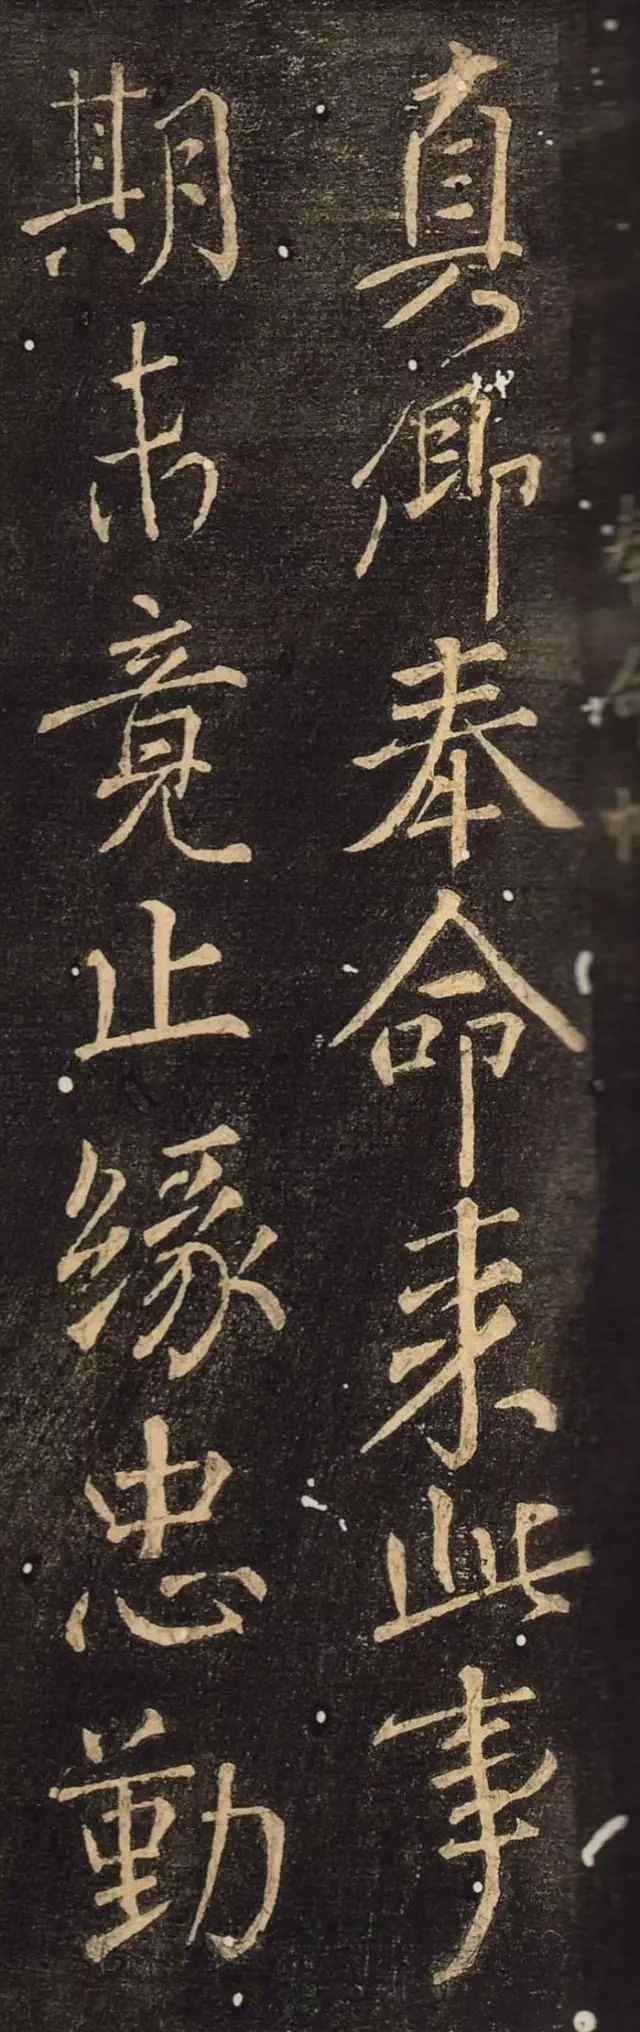 真卿奉命来此事
期未竟止缘忠勤